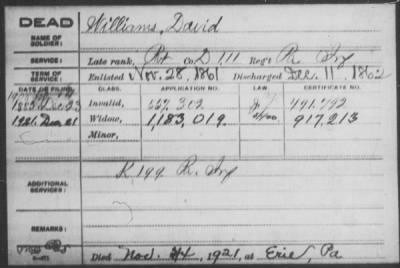 DEAD
NAME OF SOLDIER:
Williams, David
SERVICE:
Late rank, Pvt Co. D 111 Reg't Pa Inf
TERM OF SERVICE:
Enlisted Nov. 28, 1861 Discharged Dec. 11, 1862
DATE OF FILING.
CLASS.
APPLICATION NO.
LAW.
CERTIFICATE NO.
Invalid, 491.792
1921. Dec 21 Widow, 1,183,019. 917,213
Minor,
ADDITIONAL SERVICES:
K 199 Pa. Inf
REMARKS:
Died Nov. 24, 1921, at Erie, Pa